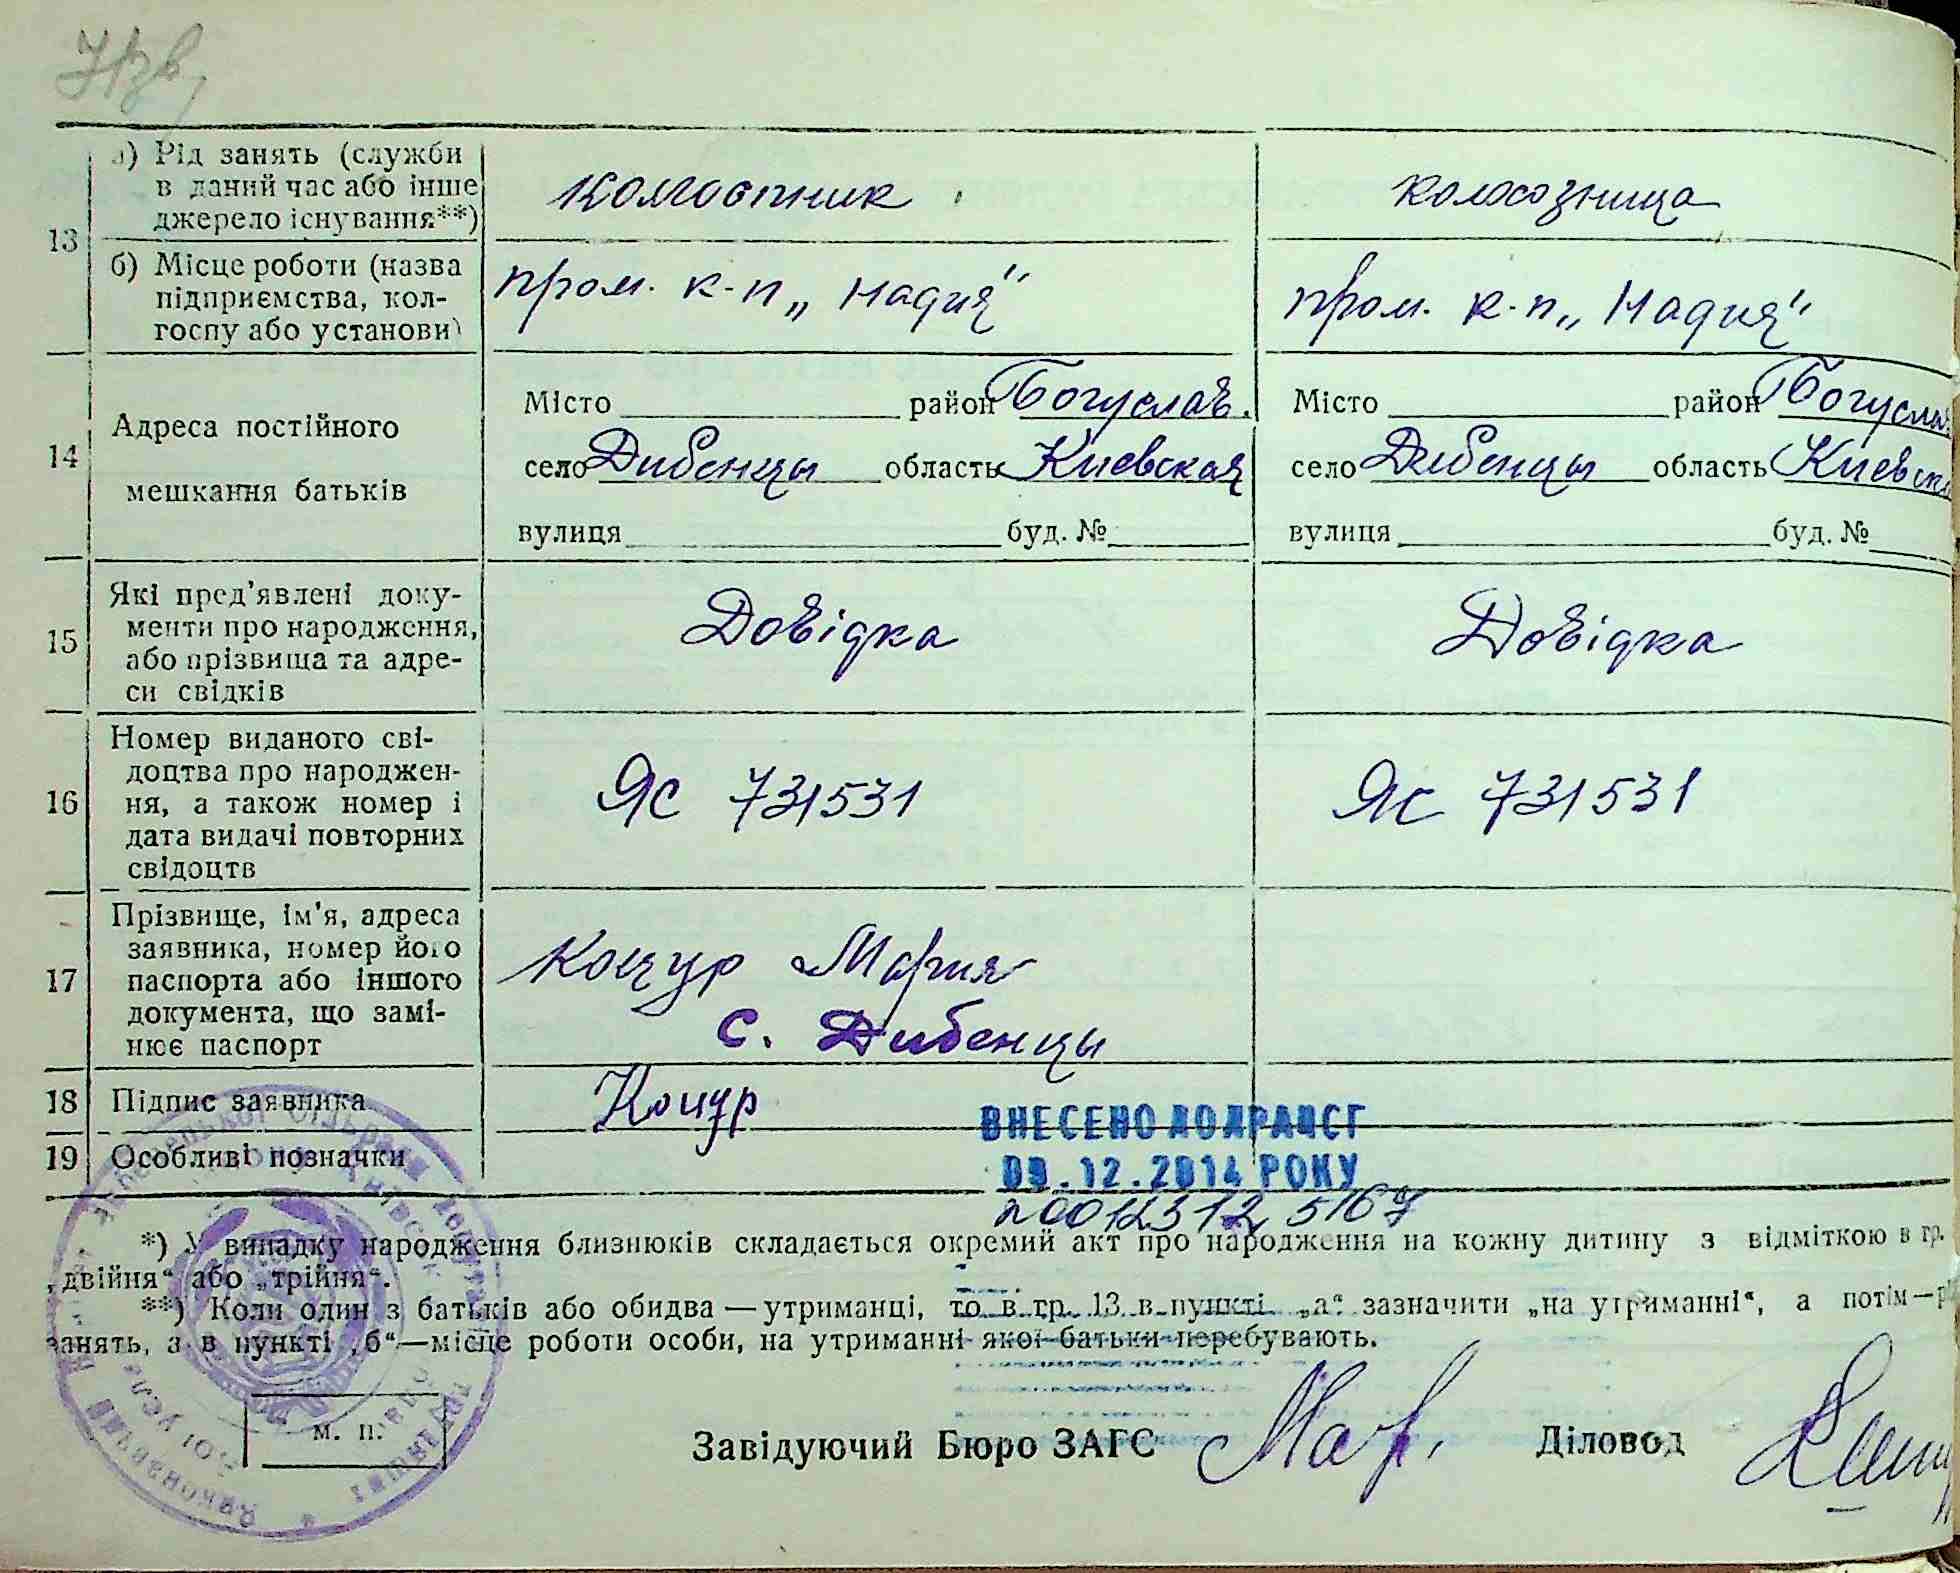 13 а) Рід занять (служби
в даний час або інше
джерело існування**)
колгоспник
колхозница
б) Місце роботи (назва
підприємства, кол-
госпу або установи)
пром. к-п „Надия"
пром. к-п „Надия"
14 Адреса постійного
мешкання батьків
Місто район Богуслав.
село Дибенцы область Киевская
вулиця буд. №
Місто район Богуслав
село Дибенцы область Киевска
вулиця буд. №
15 Які пред'явлені доку-
менти про народження,
або прізвища та адре-
си свідків
Довідка
Довідка
16 Номер виданого сві-
доцтва про народжен-
ня, а також номер і
дата видачі повторних
свідоцтв
ЯС 731531
ЯС 731531
17 Прізвище, ім'я, адреса
заявника, номер його
паспорта або іншого
документа, що замі-
нює паспорт
Коцур Мария
с. Дибенцы
18 Підпис заявника
Коцур
19 Особливі позначки
ВНЕСЕНО ДО ДРАЦСГ
09.12.2014 РОКУ
00123125167
*) У випадку народження близнюків складається окремий акт про народження на кожну дитину з відміткою в гр.
„двійня" або „трійня".
**) Коли один з батьків або обидва — утриманці, то в гр. 13 в пункті „а" зазначити „на утриманні", а потім — р
занять, з в пункті „б"—місце роботи особи, на утриманні якої батьки перебувають.
м. п.
Завідуючий Бюро ЗАГС
Діловод